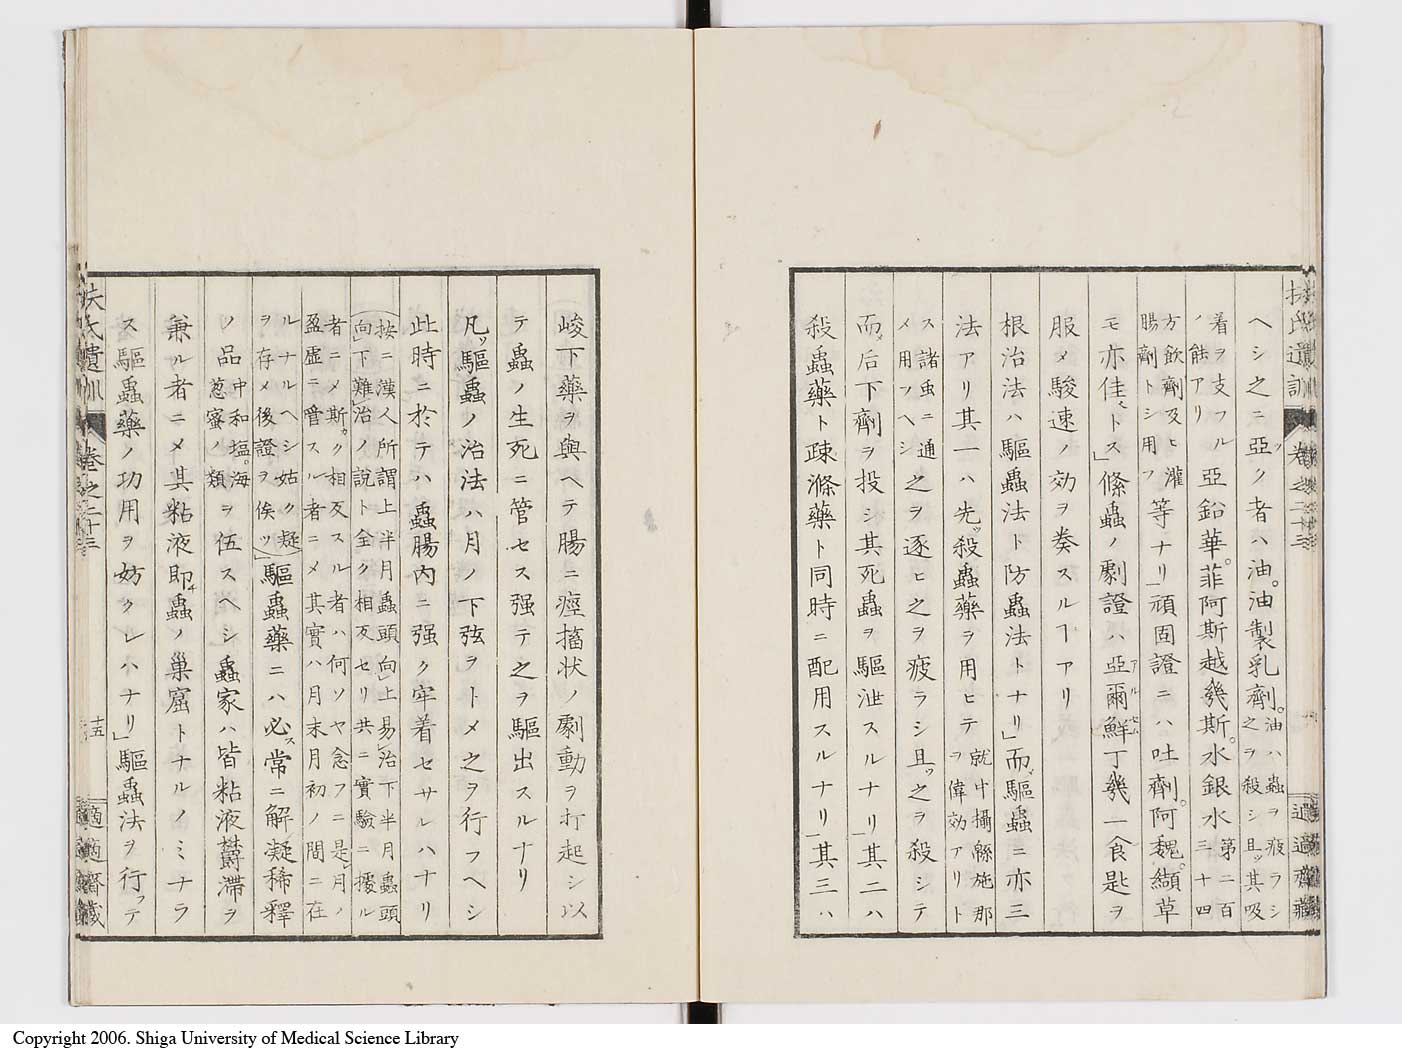 扶氏遺訓 卷之二十三
適適齋藏
ヘシ之ニ亞ック者ハ油。油製乳劑。油ハ蟲ヲ疲ラシ之ヲ殺シ且ッ其吸
着ヲ支フル
ノ能アリ
亞鉛華。菲阿斯越幾斯。水銀水第二百三十四
方飲劑及ヒ灌
腸劑トシ用フ
等ナリ」頑固證ニハ吐劑。阿魏。纈草
モ亦佳トス」條蟲ノ劇證ハ亞爾鮮丁幾一食匙ヲ
服メ駿速ノ効ヲ奏スルヿアリ
根治法ハ驅蟲法ト防蟲法トナリ」而驅蟲ニ亦三
法アリ其一ハ先ッ殺蟲藥ヲ用ヒテ就中攝緜施那
ヲ偉効アリト
ス諸虫ニ通
メ用フヘシ
之ヲ逐ヒ之ヲ疲ラシ且ッ之ヲ殺シテ
而后下劑ヲ投シ其死蟲ヲ驅泄スルナリ」其二ハ
殺蟲藥ト疎滌藥ト同時ニ配用スルナリ」其三ハ
峻下藥ヲ與ヘテ腸ニ痙搐状ノ劇動ヲ打起シ以
テ蟲ノ生死ニ管セス强テ之ヲ驅出スルナリ
凡ッ驅蟲ノ治法ハ月ノ下弦ヲトメ之ヲ行フヘシ
此時ニ於テハ蟲腸内ニ强ク牢着セサルハナリ
按ニ漢人所謂上半月蟲頭向上易治下半月蟲頭
向下難治ノ說ト全ク相反セリ共ニ實驗ニ據ル
者ニメ斯ク相反スル者ハ何ソヤ念フニ是月ノ
盈虛ニ管スル者ニメ其實ハ月末月初ノ間ニ在
ルナルヘシ姑ク疑
ヲ存メ後證ヲ俟ッ
」驅蟲藥ニハ必ス常ニ解凝稀釋
ノ品中和塩。海
葱蜜ノ類
ヲ伍スヘシ蟲家ハ皆粘液欝滯ヲ
兼ル者ニメ其粘液即チ蟲ノ巢窟トナルノミナラ
ス驅蟲藥ノ功用ヲ妨クレハナリ」驅蟲法ヲ行ッテ
扶氏遺訓 卷之二十三
十五
適適齋藏
Copyright 2006. Shiga University of Medical Science Library